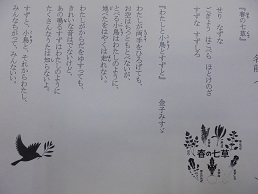 『春の七草』
せり なずな
ごぎょう はこべら ほとけのざ
すずな すずしろ
『わたしと小鳥とすずと』
金子みすゞ
わたしが両手をひろげても、
お空はちっともとべないが、
とべる小鳥はわたしのように、
地べたをはやくは走れない。
わたしがからだをゆすっても、
きれいな音はでないけど、
あの鳴るすずはわたしのように
たくさんなうたは知らないよ。
すずと、小鳥と、それからわたし、
みんなちがって、みんないい。
春の七草